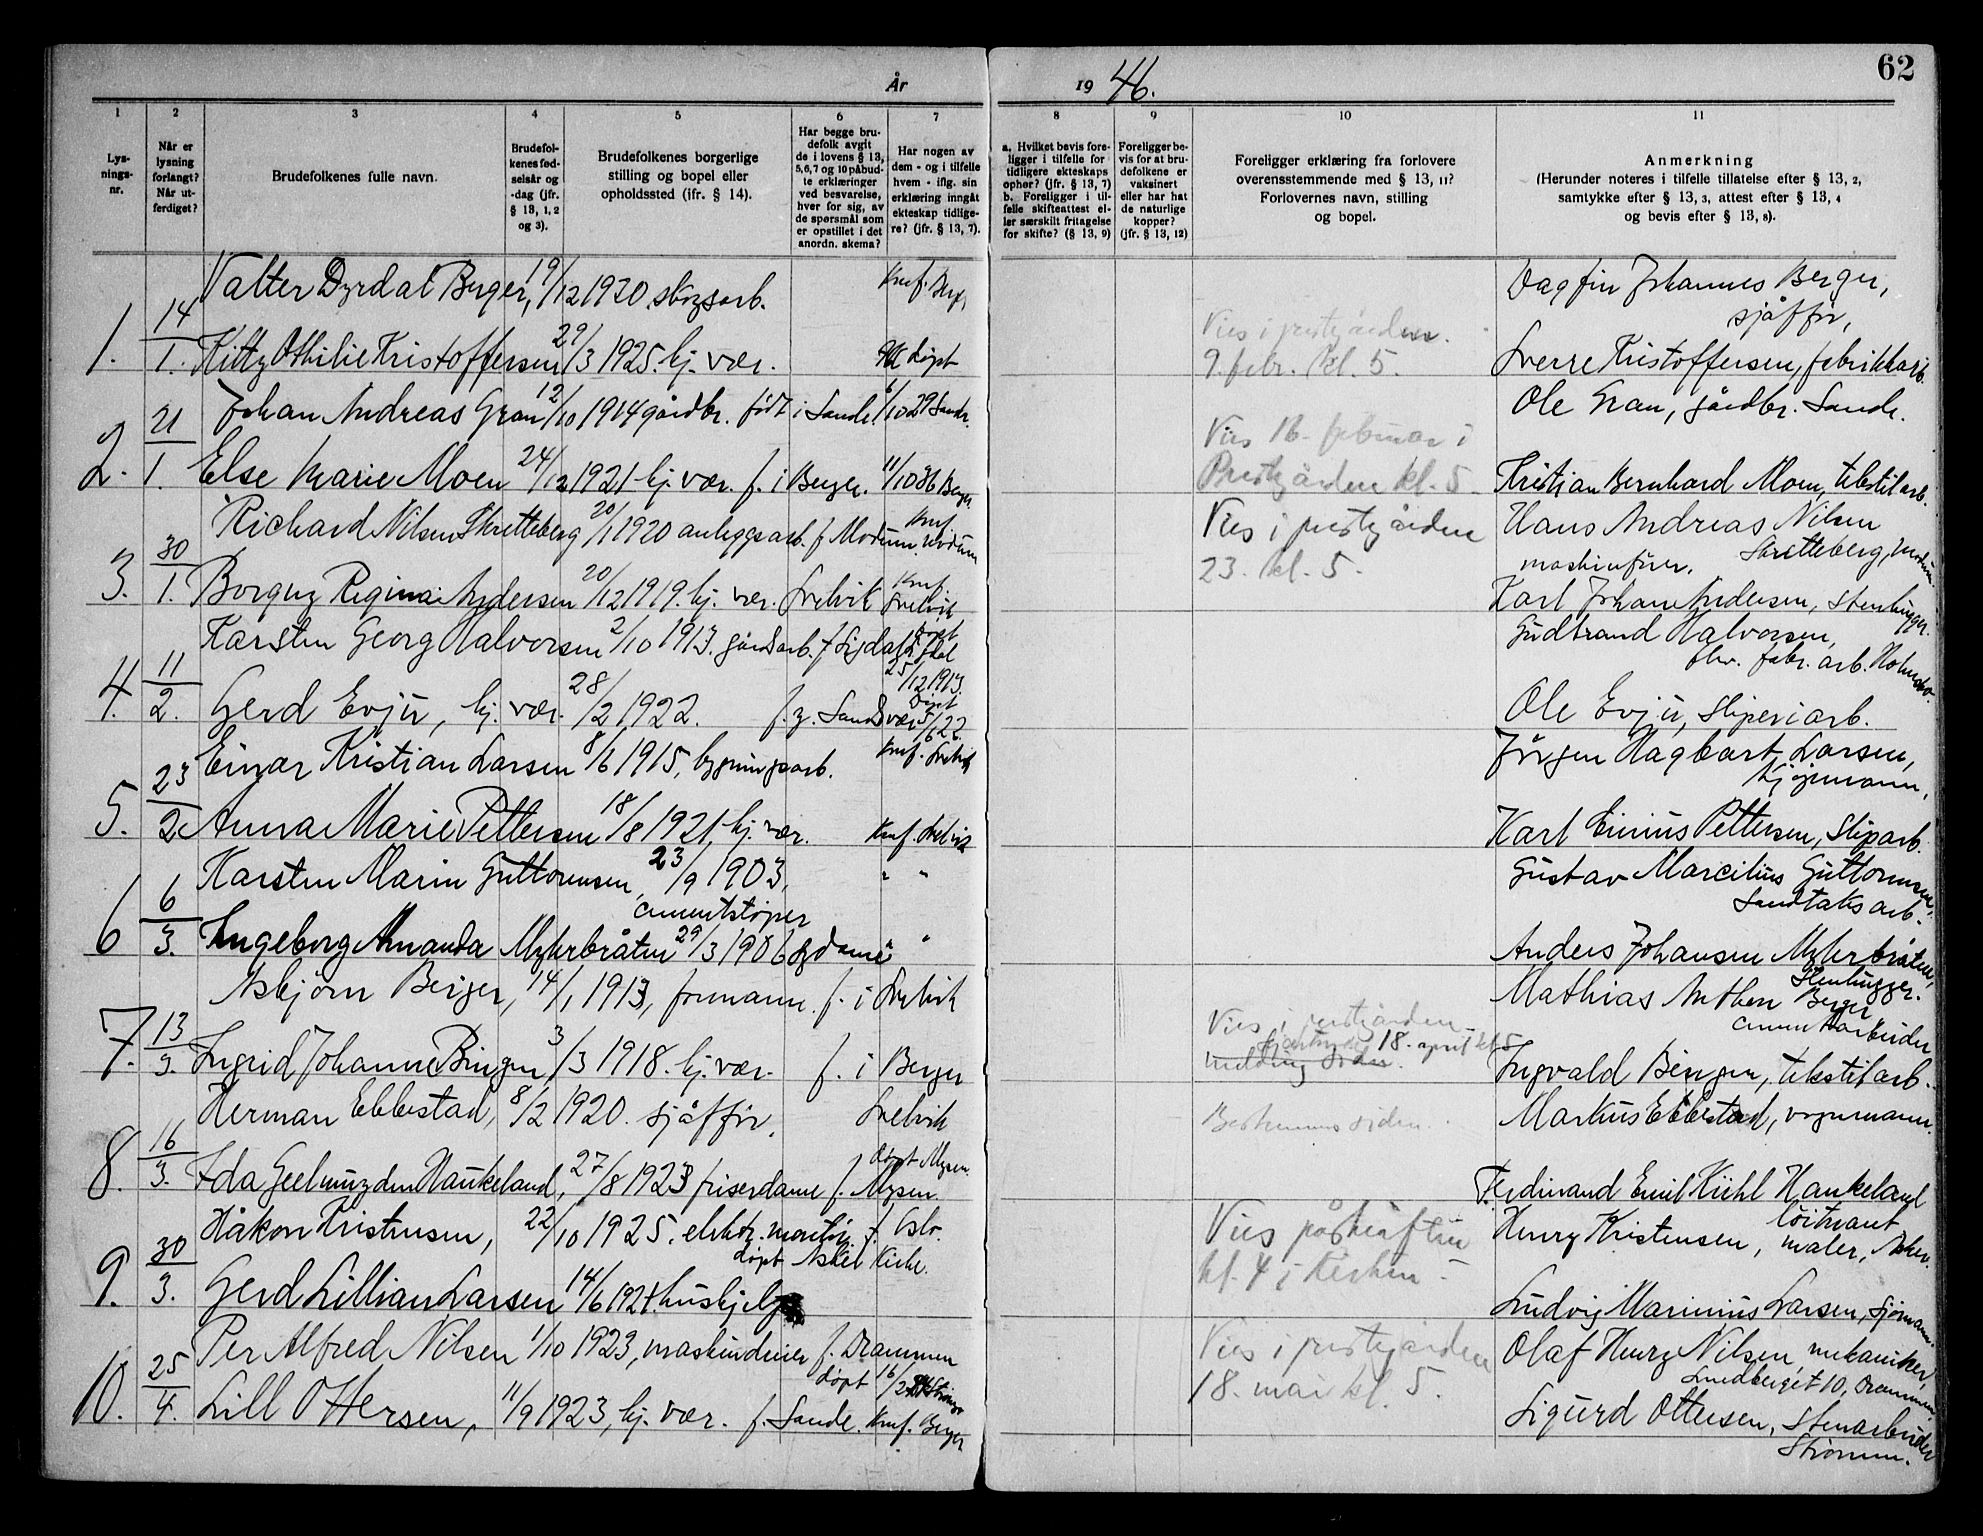 62
År 1946.
1 2 3 4 5 6 7 8 9 10 11
Lys-
nings-
nr.
Når er
lysning
forlangt?
Når ut-
ferdiget?
Brudefolkenes fulle navn.
Brudefol-
kenes fød-
selsår og
-dag (jfr.
§ 13, 1, 2
og 3).
Brudefolkenes borgerlige
stilling og bopel eller
opholdssted (ifr. § 14).
Har begge bru-
defolk avgit
de i lovens § 13,
5,6,7 og 10 påbud-
te erklæringer
ved besvarelse,
hver for sig, av
de spørsmål som
er opstillet i det
anordn. skema?
Har nogen av
dem - og i tilfelle
hvem - iflg. sin
erklæring inngått
ekteskap tidlige-
re? (jfr. § 13, 7).
a. Hvilket bevis fore-
ligger i tilfelle for
tidligere ekteskaps
ophør? (jfr. § 13, 7)
b. Foreligger i til-
felle skifteattest el-
ler særskilt fritagelse
for skifte? (§ 13, 9)
Foreligger be-
vis for at bru-
defolkene er
vaksinert
eller har hat
de naturlige
kopper?
(jfr. § 13, 12)
Foreligger erklæring fra forlovere
overensstemmende med § 13, 11?
Forlovernes navn, stilling
og bopel.
Anmerkning
(Herunder noteres i tilfelle tillatelse efter § 13, 2,
samtykke efter § 13, 3, attest efter § 13, 4
og bevis efter § 13, 8).
Valter Dyrdal Berger, 19/12 1920. skogsarb. Knf. Berg. Dagfin Johannes Berger,
sjåffør,
1. 14/1. Kitty Othilie Kristoffersen 29/3 1925. hj. vær. døpt Vies i prestgården.
9. febr. kl. 5. Sverre Kristoffersen, fabrikkarb.
Johan Andreas Gran 12/10 1914 gårdbr. født i Sande. 6/10 29 Sande. Ole Gran, gårdbr. Sande.
2. 21/1. Else Marie Moen 24/12 1921 hj. vær. f. i Berger. 11/10 36 Berger Vies 16. februar i
Prestgården kl. 5. Kristian Bernhard Moen, tekstilarb.
Richard Nilsen Skretteberg 20/1 1920 anleggsarb. f Modum. Knf. Modum Vies i prestgården
23. kl. 5. Hans Andreas Nilsen
Skretteberg, Modum
maskinfører.
3. 30/1. Borgny Regina Andersen 20/12 1919. hj. vær. Svelvik Knf. Svelvik Karl Johan Andersen, stenhugger.
Karsten Georg Halvorsen 2/10 1913. gårdsarb. f Sigdal døpt
25/12 1913. Gudbrand Halvorsen,
fhv. fabr. arb. Holmsbo.
4. 11/2. Gerd Evju, hj. vær. 28/2 1922. f. Døpt 5/6 22. Ole Evju, sliperiarb.
Einar Kristian Larsen 8/6 1915, bygningsarb. Knf. Svelvik Jørgen Hagbart Larsen,
5. 23/2 Anna Marie Pettersen 18/8 1921, hj. vær. Knf. Svelvik Karl Pettersen, sliparb.
Karsten Marin Guttormsen, 23/9 1903, " " Gustav Marcilius Guttormsen,
sementstøper Sandtaksarb.
6 6/3. Ingeborg Amanda Myhrbråten 29/3 1906 " Anders Johansen Myhrbråten,
Stenhugger.
Asbjørn Berger, 14/1 1913, formann. f. i Svelvik Mathias Anthon Berger
sementarbeider
7. 13/3. Ingrid Johanne Bingen 3/3 1918. hj. vær. f. i Berger Vies i prestgården
18. april kl 5
melding siden. Ingvald Bingen, tekstilarb.
Herman Ebbestad, 8/2 1920. sjåffør, Svelvik Bestemmes siden. Markus Ebbestad, vognmann.
8. 16/3. Ida Geelmuyden Haukeland, 27/8 1923 friserdame f. Mysen. døpt Mysen. Ferdinand Emil Kühl Haukeland
løitnant
Håkon Kristensen, 22/10 1925. elektr. montør f. Oslo. Vies påskeaften
kl. 4 i Kirken. Henry Kristensen, maler, Asker.
døpt Asker Kirke.
9. 30/3. Gerd Lillian Larsen 14/6 1921. hushjelp Ludvig Marinius Larsen, sjømann.
Per Alfred Nilsen 1/10 1923, maskindreier f. Drammen Vies i prestgården
18. mai kl. 5. Olaf Henry Nilsen, mekaniker,
Lundberget 10, Drammen
døpt 16/2
10. 25/4. Lill Ottersen, 11/9 1923, hj. vær. f. Sande. Knf. Berger Sigurd Ottersen, Stenarbeider
Strømm.